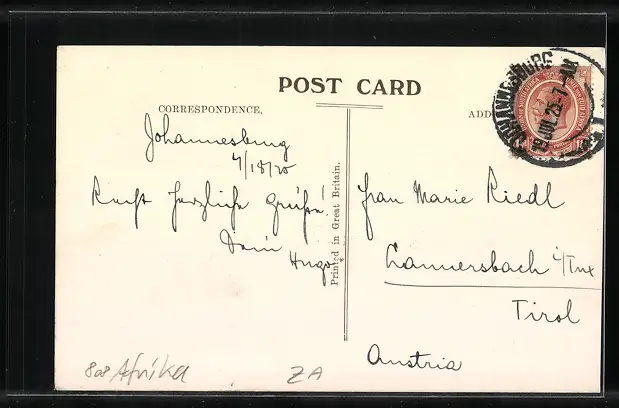 POST CARD
CORRESPONDENCE.
ADD
JOHANNESBURG
19 JUL 25. 7-AM
Johannesburg
7/18/25
Recht herzliche Grüße!
Dein
Hugo
Printed in Great Britain.
Frau Marie Riedl
Lannersbach i/Tux
Tirol
Austria
808 Afrika
ZA